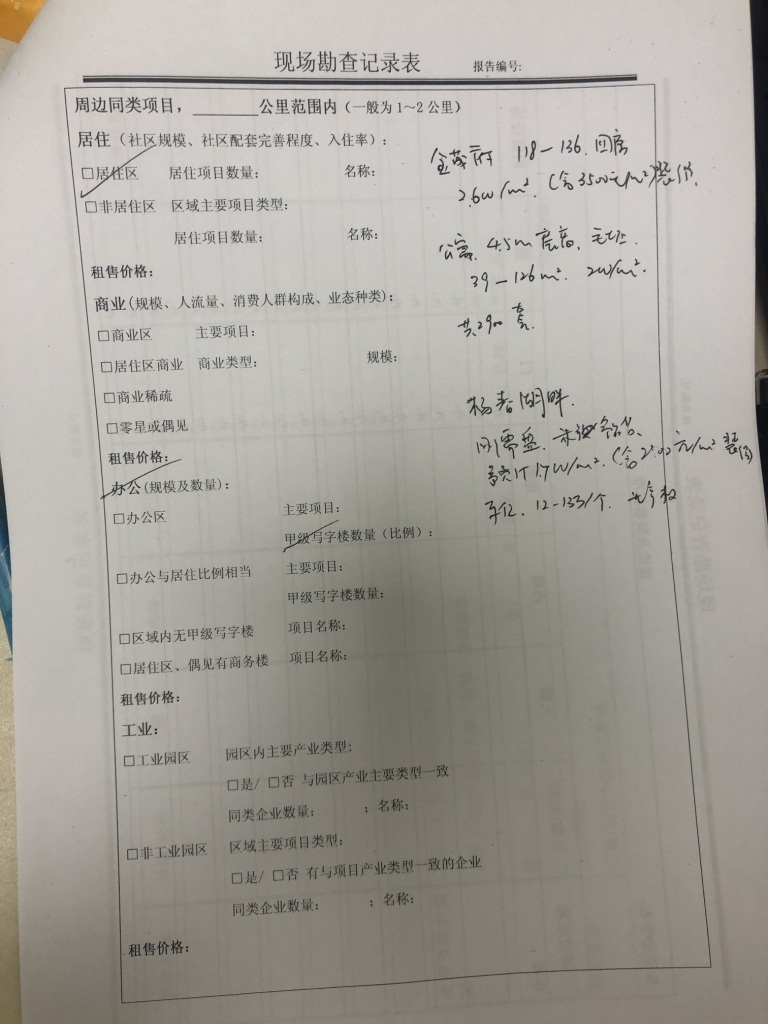 现场勘查记录表 报告编号:
周边同类项目，______公里范围内（一般为1～2公里）
居住（社区规模、社区配套完善程度、入住率）：
□居住区 居住项目数量： 名称：
金茂府 118—136. 四房
2.6w/m². (含3500元/m²)装修.
□非居住区 区域主要项目类型：
居住项目数量： 名称：
公寓. 4.5m层高.
租售价格：
39—126m². 2w/m².
商业(规模、人流量、消费人群构成、业态种类)：
□商业区 主要项目：
共2900套.
□居住区商业 商业类型： 规模：
□商业稀疏
杨春湖畔.
□零星或偶见
租售价格：
1.7w/m². (含2500元/m²装修)
办公(规模及数量)：
□办公区 主要项目：
车位. 12-13万/个.
甲级写字楼数量（比例）：
□办公与居住比例相当 主要项目：
甲级写字楼数量：
□区域内无甲级写字楼 项目名称：
□居住区、偶见有商务楼 项目名称：
租售价格：
工业：
□工业园区 园区内主要产业类型：
□是/ □否 与园区产业主要类型一致
同类企业数量： ；名称：
□非工业园区 区域主要项目类型：
□是/ □否 有与项目产业类型一致的企业
同类企业数量： ；名称：
租售价格：